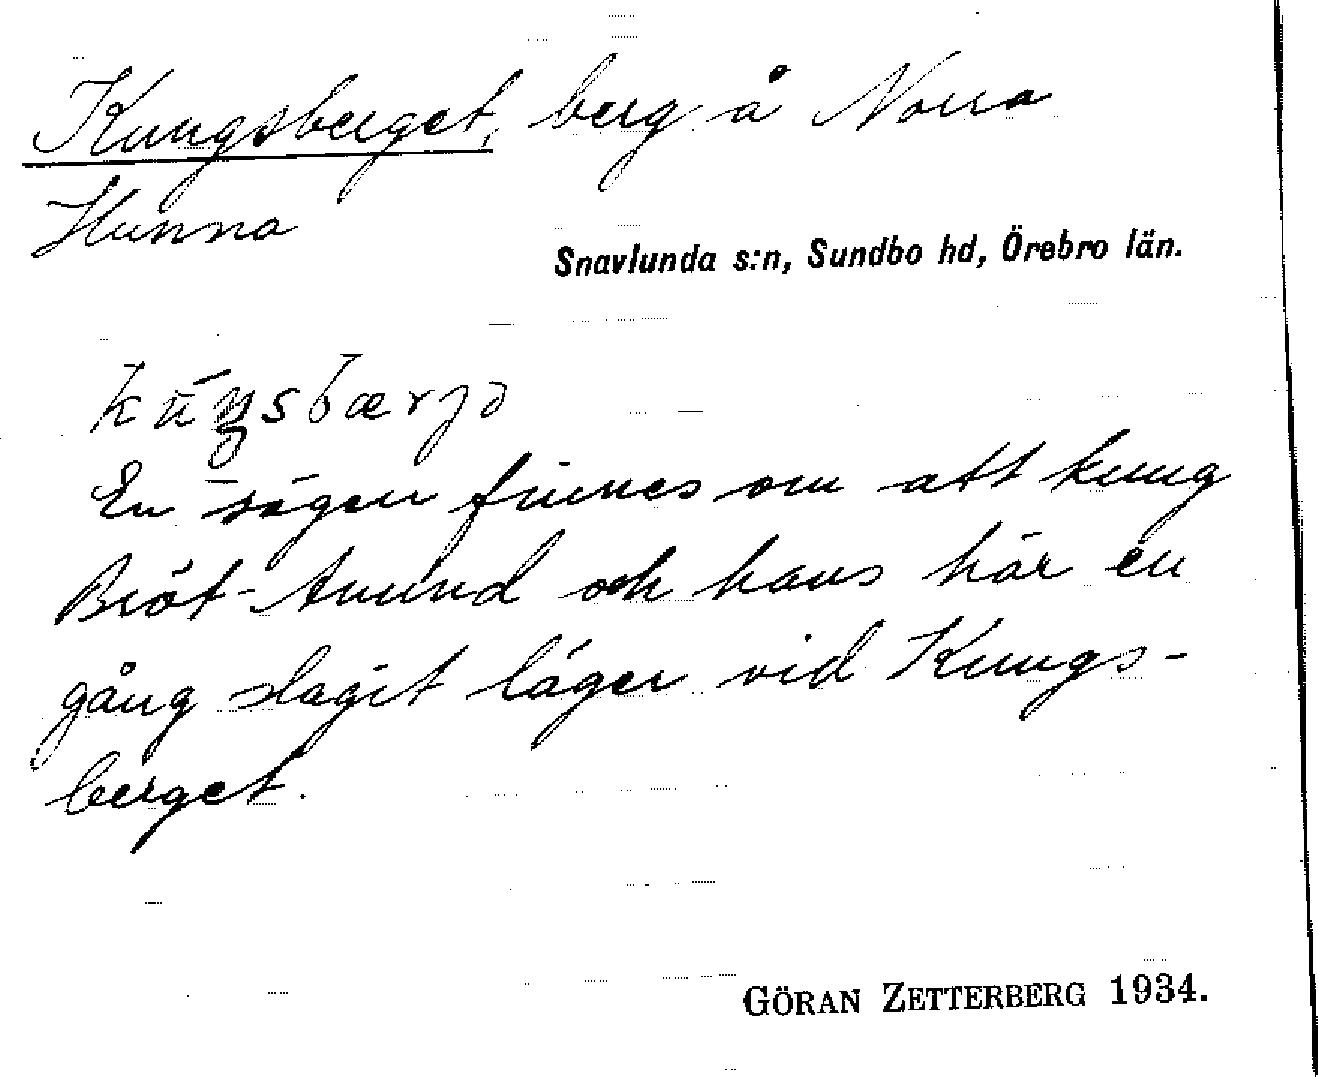 Kungsberget, berg å Norra
Hunna
Snavlunda s:n, Sundbo hd, Örebro län.
En sägen finnes om att kung
Bröt-Anund och hans här en
gång slagit läger vid Kungs-
berget.
GÖRAN ZETTERBERG 1934.